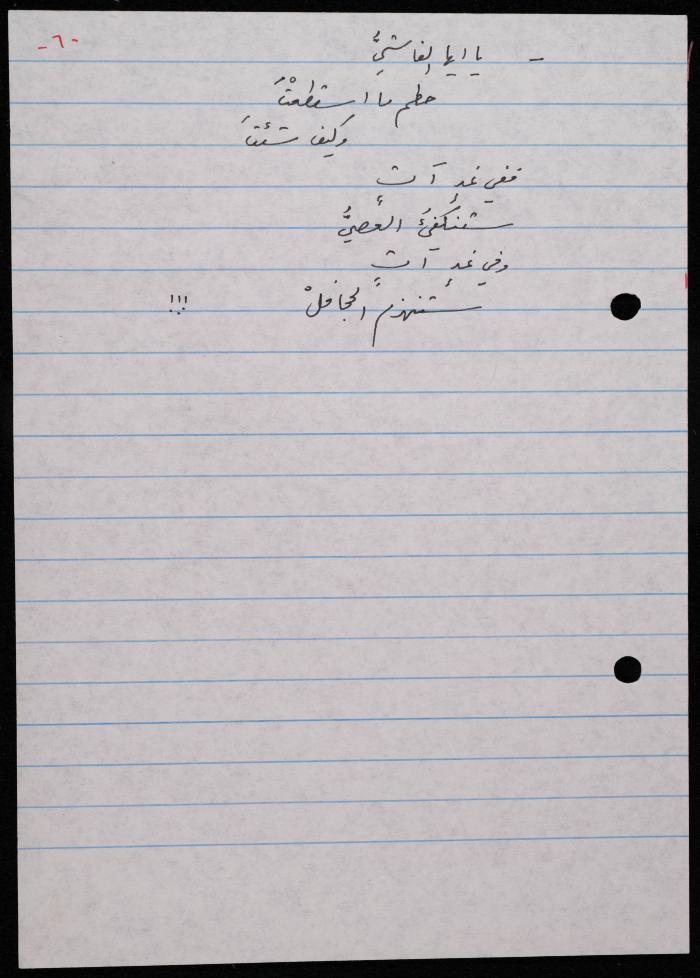 -٦-
- يا ايها الفاشيُّ
حطم ما استطعْتَ
وكيف شئتَ
ففي غدٍ آتٍ
ستنكفئُ العصيُّ
وفي غدٍ آتٍ
ستنهزمُ الجحافلْ !!!